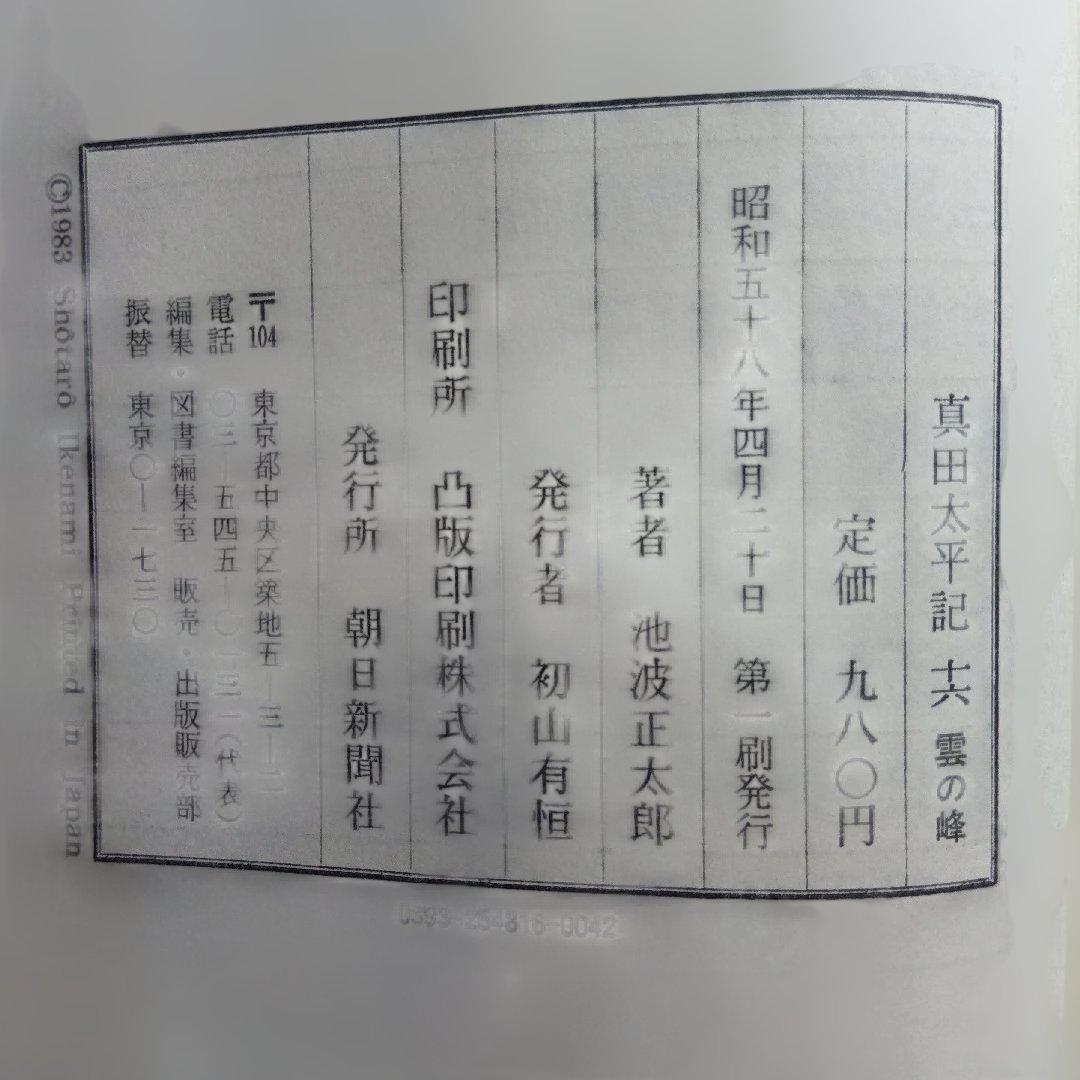 真田太平記 十六 雲の峰
定価 九八〇円
昭和五十八年四月二十日 第一刷発行
著者 池波正太郎
発行者 初山有恒
印刷所 凸版印刷株式会社
発行所 朝日新聞社
〒104 東京都中央区築地五―三―二
電話 〇三―五四五―〇一三一(代表)
編集・図書編集室 販売・出版販売部
振替 東京〇―一七三〇
©1983 Shôtarô Ikenami Printed in Japan
0393-254816-0042